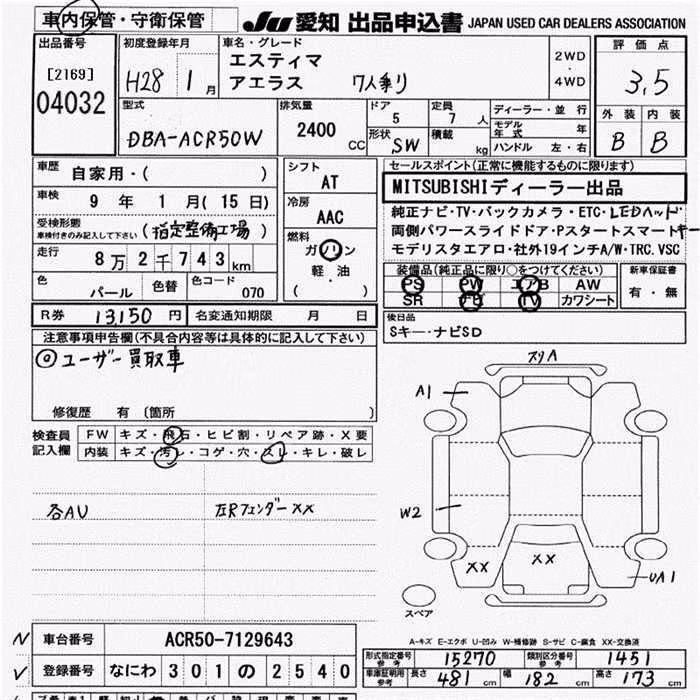 車内保管・守衛保管 JU 愛知 出品申込書 JAPAN USED CAR DEALERS ASSOCIATION
出品番号 初度登録年月 車名・グレード 評価点
[2169] H28 1月 エスティマ 2WD
・
04032 アエラス 7人乗り 4WD 3.5
型式 排気量 ドア 定員 ディーラー・並行 外装 内装
DBA-ACR50W 2400 CC 5 7人 モデル年式 年 B B
形状 SW 積載 kg ハンドル 左・右
車歴 自家用・( ) シフト セールスポイント(正常に機能するものに限ります)
AT MITSUBISHIディーラー出品
車検 9年 1月(15日) 冷房 純正ナビ・TV・バックカメラ・ETC・LEDヘッド
受検形態 AAC 両側パワースライドドア・Pスタートスマートキー
車検付きのみ記入して下さい (指定整備工場) 燃料 モデリスタエアロ・社外19インチA/W・TRC.VSC
走行 8万2千743km ガソリン 装備品(純正品に限り○をつけてください) 新車保証書
軽・油 PS PW エアB AW 有・無
色 パール 色替 色コード 070 ( ) SR ナビ TV カワシート
R券 13,150円 名変通知期限 月 日 後日品
注意事項申告欄(不具合内容等は具体的に記入して下さい) Sキー・ナビSD
◎ユーザー買取車 スリA
A1
修復歴 有 (箇所 )
検査員 FW キズ・飛石・ヒビ割・リペア跡・X要
記入欄 内装 キズ・汚レ・コゲ・穴・スレ・キレ・破レ
各AU 左Rフェンダー XX W2
XX XX
UA1
スペア
A-キズ E-エクボ U-凹み W-補修跡 S-サビ C-腐食 XX-交換済
N 車台番号 ACR50-7129643 形式指定番号 参考 15270 類別区分番号 参考 1451
V 登録番号 なにわ 301 の 2540 車庫証明 参考 長さ 481cm 幅 182cm 高さ 173cm